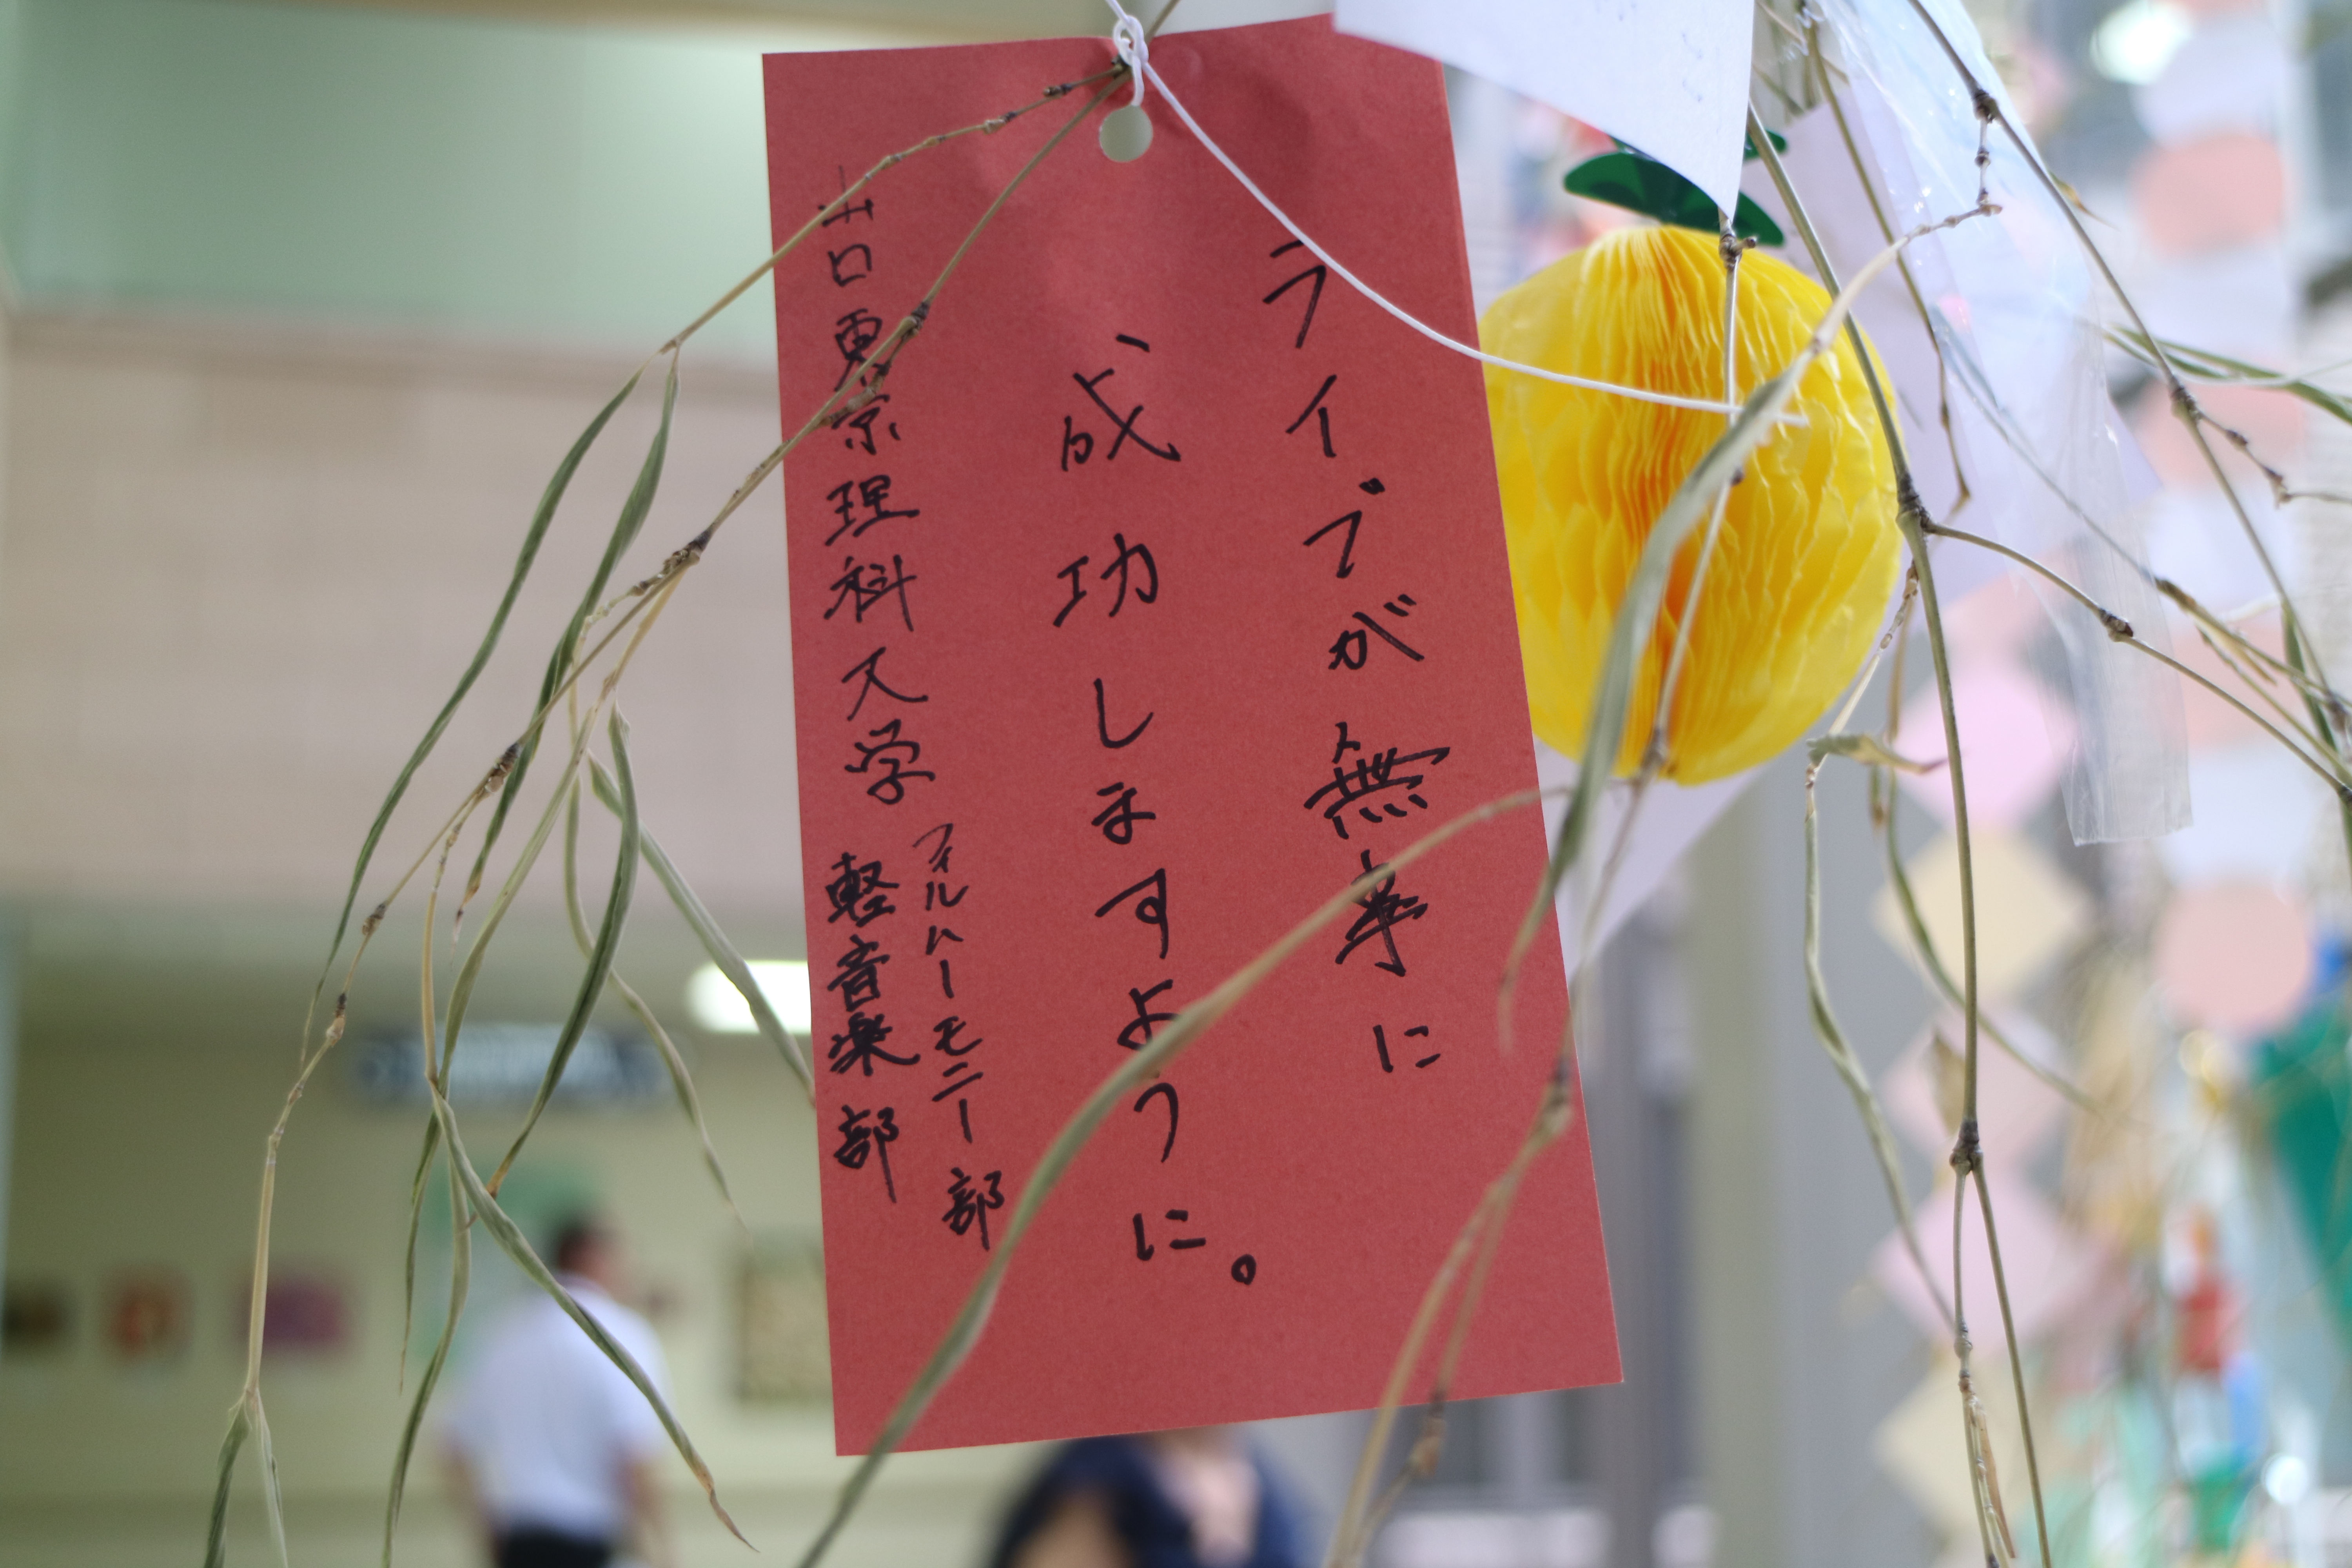 ライブが無事に
成功しますように。
山口東京理科大学
フィルハーモニー部
軽音楽部